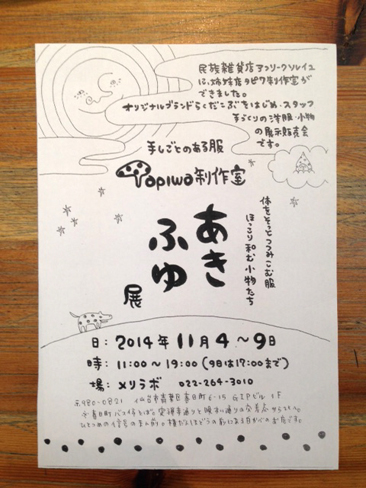 民族雑貨店アフリークソレイユ
に、姉妹店タピワ制作室が
できました。
オリジナルブランドらくだこぶをはじめ、スタッフ
手づくりの洋服・小物
の展示販売会
です。
手しごとのある服
Tapiwa制作室
体をそっとつつみこむ服
ほっこり和む小物たち
あき
ふゆ
展
日: 2014年 11月 4〜9日
時: 11:00〜19:00 (9日は17:00まで)
場: メリラボ 022-264-3010
仙台市青葉区春日町 6-15 GIPビル 1F